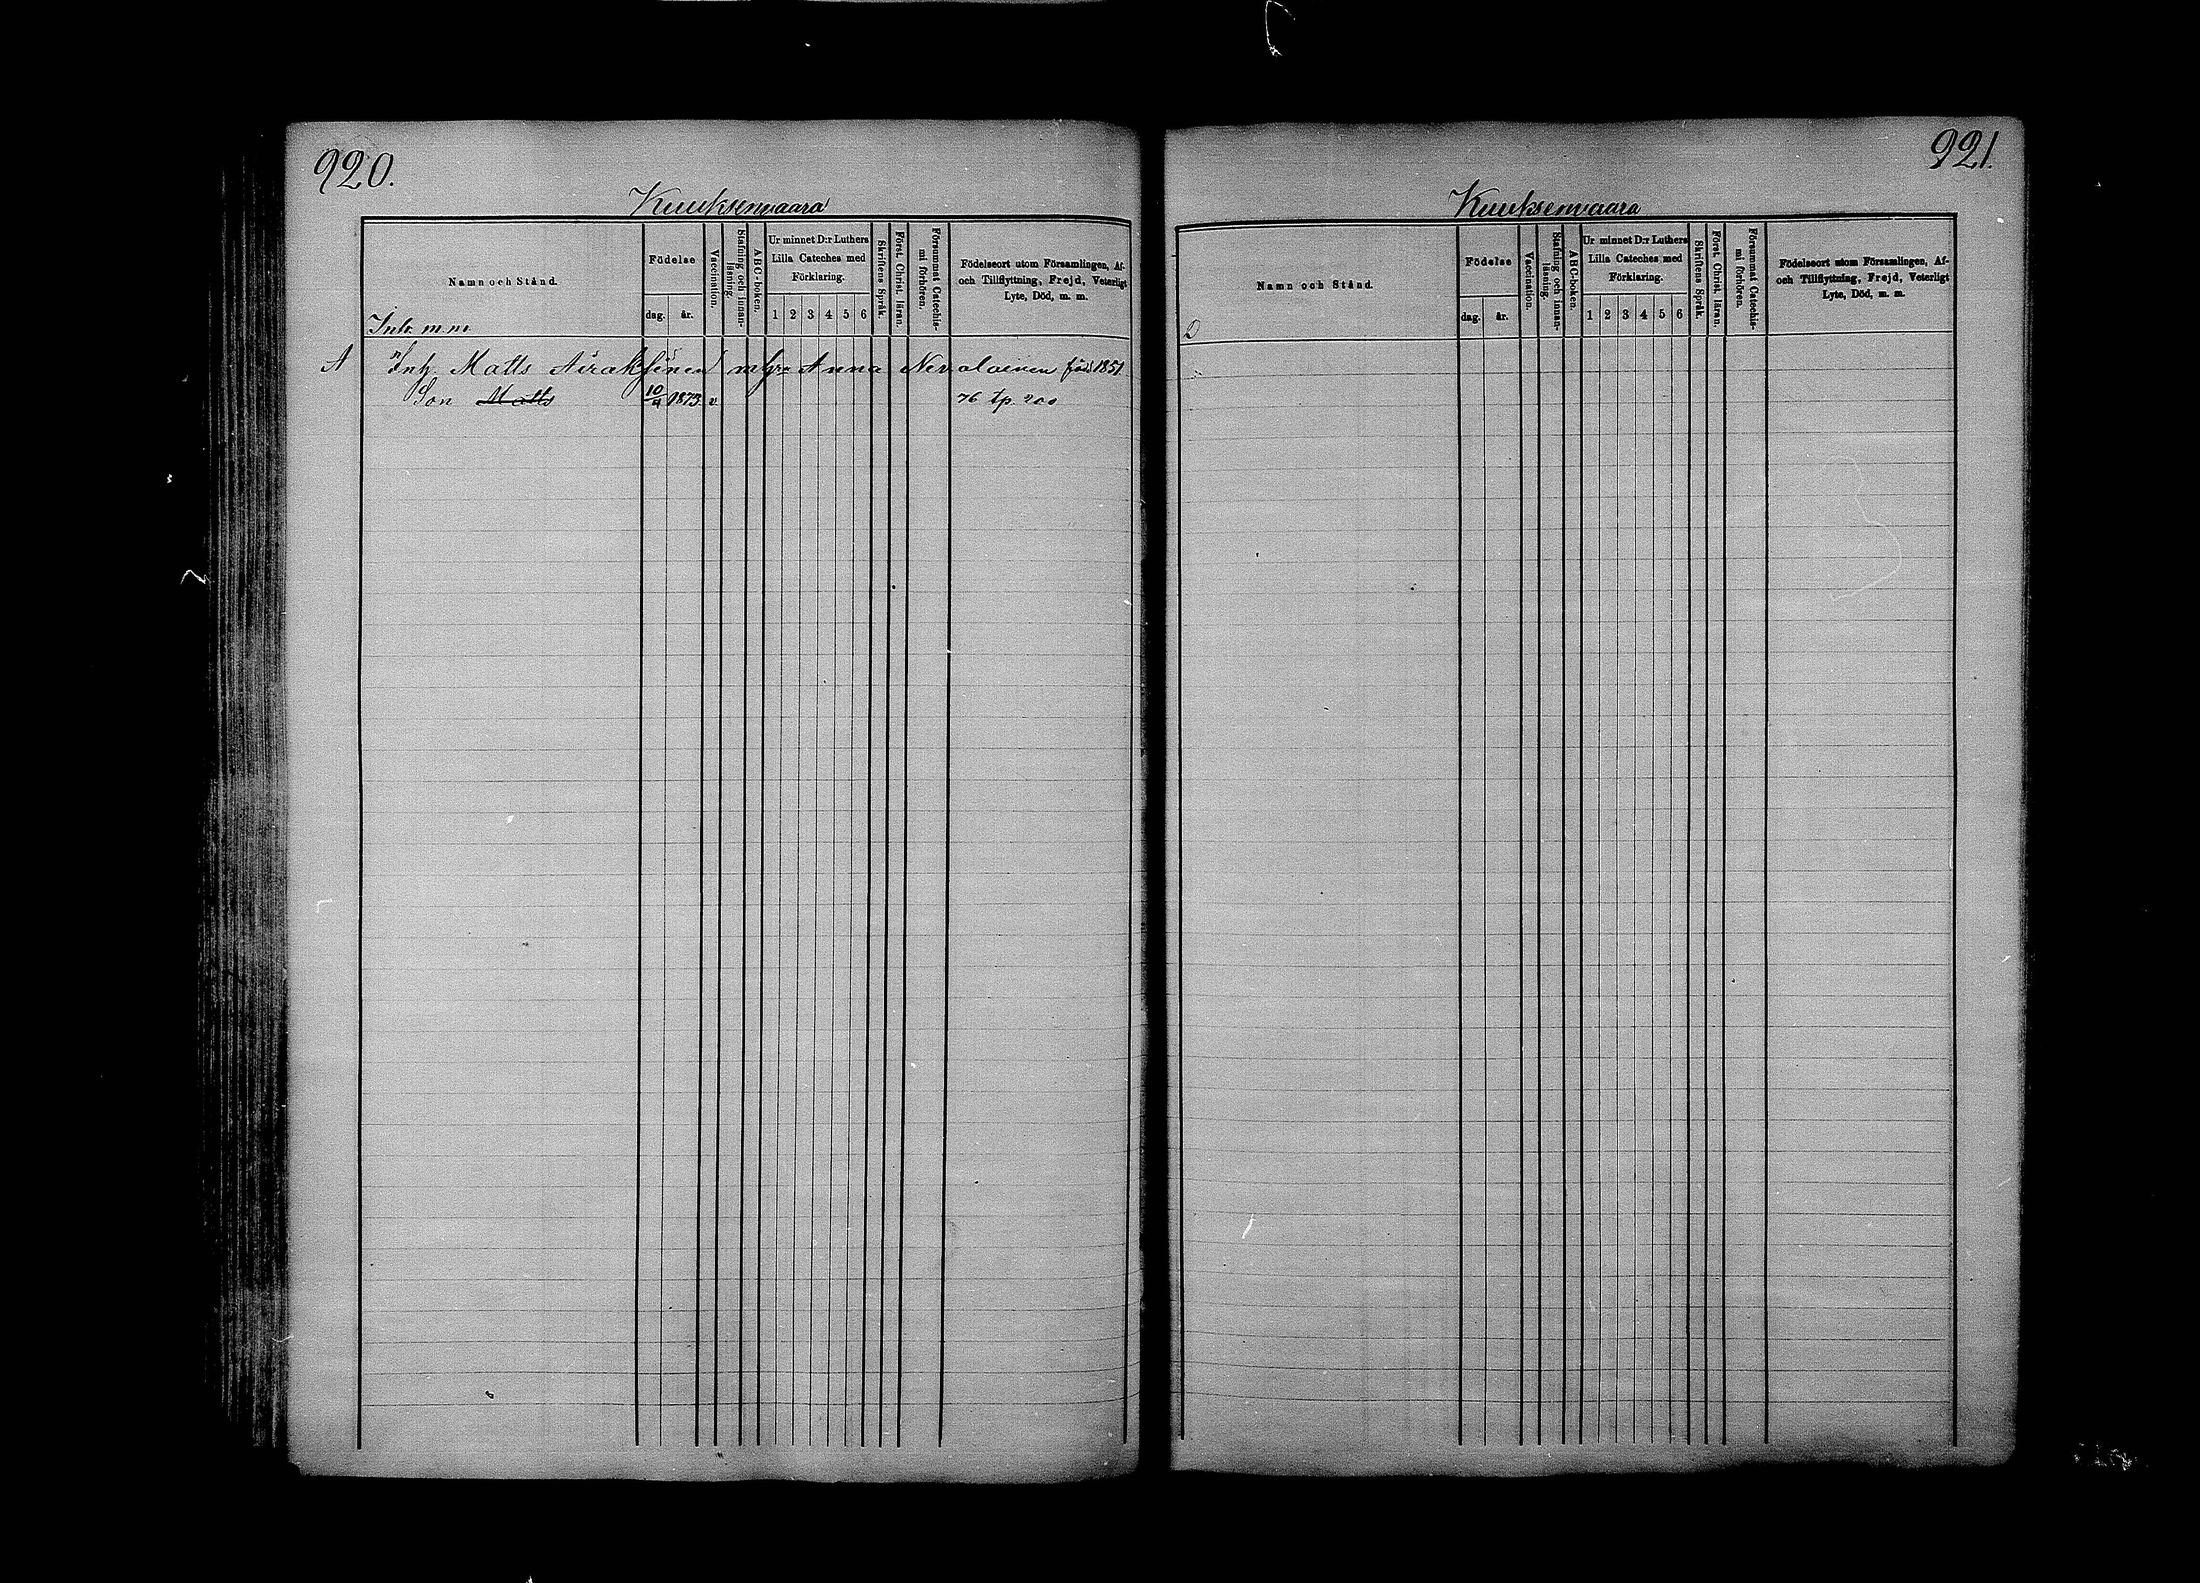 920.
Kuuksenvaara
Namn och Stånd.
Födelse
dag. år.
Vaccination.
Stafning och innan-
läsning.
ABC-boken.
Ur minnet D:r Luthers
Lilla Cateches med
Förklaring.
1 2 3 4 5 6
Skriftens Språk.
Först. Christ. läran.
Försummat Catechis-
mi förhören.
Födelseort utom Församlingen, Af-
och Tillflyttning, Frejd, Veterligt
Lyte, Död, m. m.
Inh. m.m.
A Inh. Matts Airaksinen Anna Nevalainen föd 1851
Son Matts 10/4 1873 v. 76 tp. 200
921.
Kuuksenvaara
Namn och Stånd.
Födelse
dag. år.
Vaccination.
Stafning och innan-
läsning.
ABC-boken.
Ur minnet D:r Luthers
Lilla Cateches med
Förklaring.
1 2 3 4 5 6
Skriftens Språk.
Först. Christ. läran.
Försummat Catechis-
mi förhören.
Födelseort utom Församlingen, Af-
och Tillflyttning, Frejd, Veterligt
Lyte, Död, m. m.